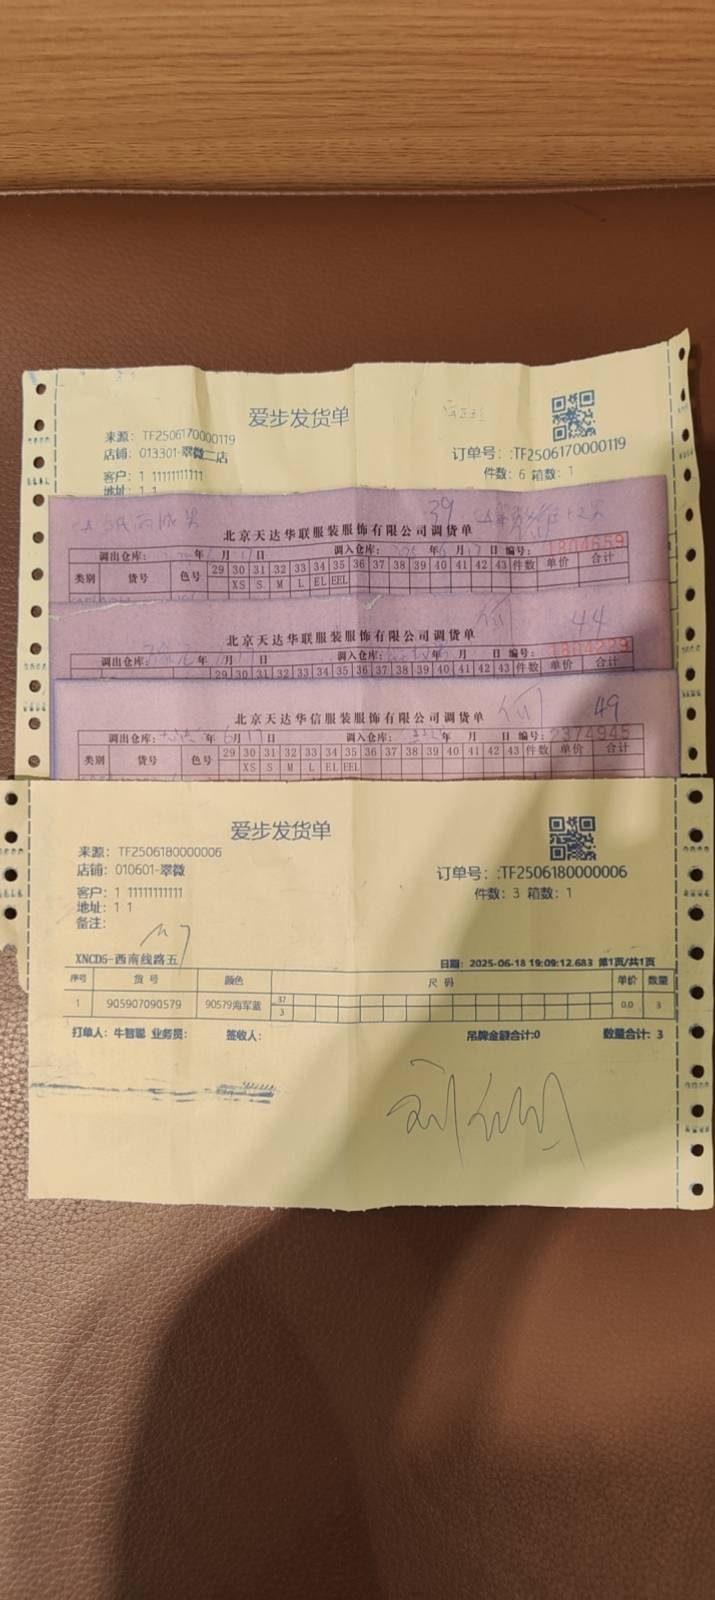 爱步发货单
来源: TF2506170000119
店铺: 013301-翠微二店
订单号: :TF2506170000119
客户: 1 11111111111
件数: 6 箱数: 1
地址: 1 1
39
北京天达华联服装服饰有限公司调货单
调出仓库: 年 月17日 调入仓库: 年6月17日 编号: 1804659
类别 货号 色号 29 30 31 32 33 34 35 36 37 38 39 40 41 42 43 件数 单价 合计
XS S M L EL EEL
44
北京天达华联服装服饰有限公司调货单
调出仓库: 年 月 日 调入仓库: 年 月 日 编号: 1804229
29 30 31 32 33 34 35 36 37 38 39 40 41 42 43 件数 单价 合计
49
北京天达华信服装服饰有限公司调货单
调出仓库: 年6月17日 调入仓库: 年 月 日 编号: 2374945
类别 货号 色号 29 30 31 32 33 34 35 36 37 38 39 40 41 42 43 件数 单价 合计
XS S M L EL EEL
爱步发货单
来源: TF2506180000006
店铺: 010601-翠微
订单号: :TF2506180000006
客户: 1 11111111111
件数: 3 箱数: 1
地址: 1 1
备注:
XNCD5-西南线路五
日期: 2025-06-18 19:09:12.683 第1页/共1页
序号 货 号 颜色 尺 码 单价 数量
1 905907090579 90579海军蓝 37 0.0 3
3
打单人: 牛智聪 业务员: 签收人: 吊牌金额合计:0 数量合计: 3